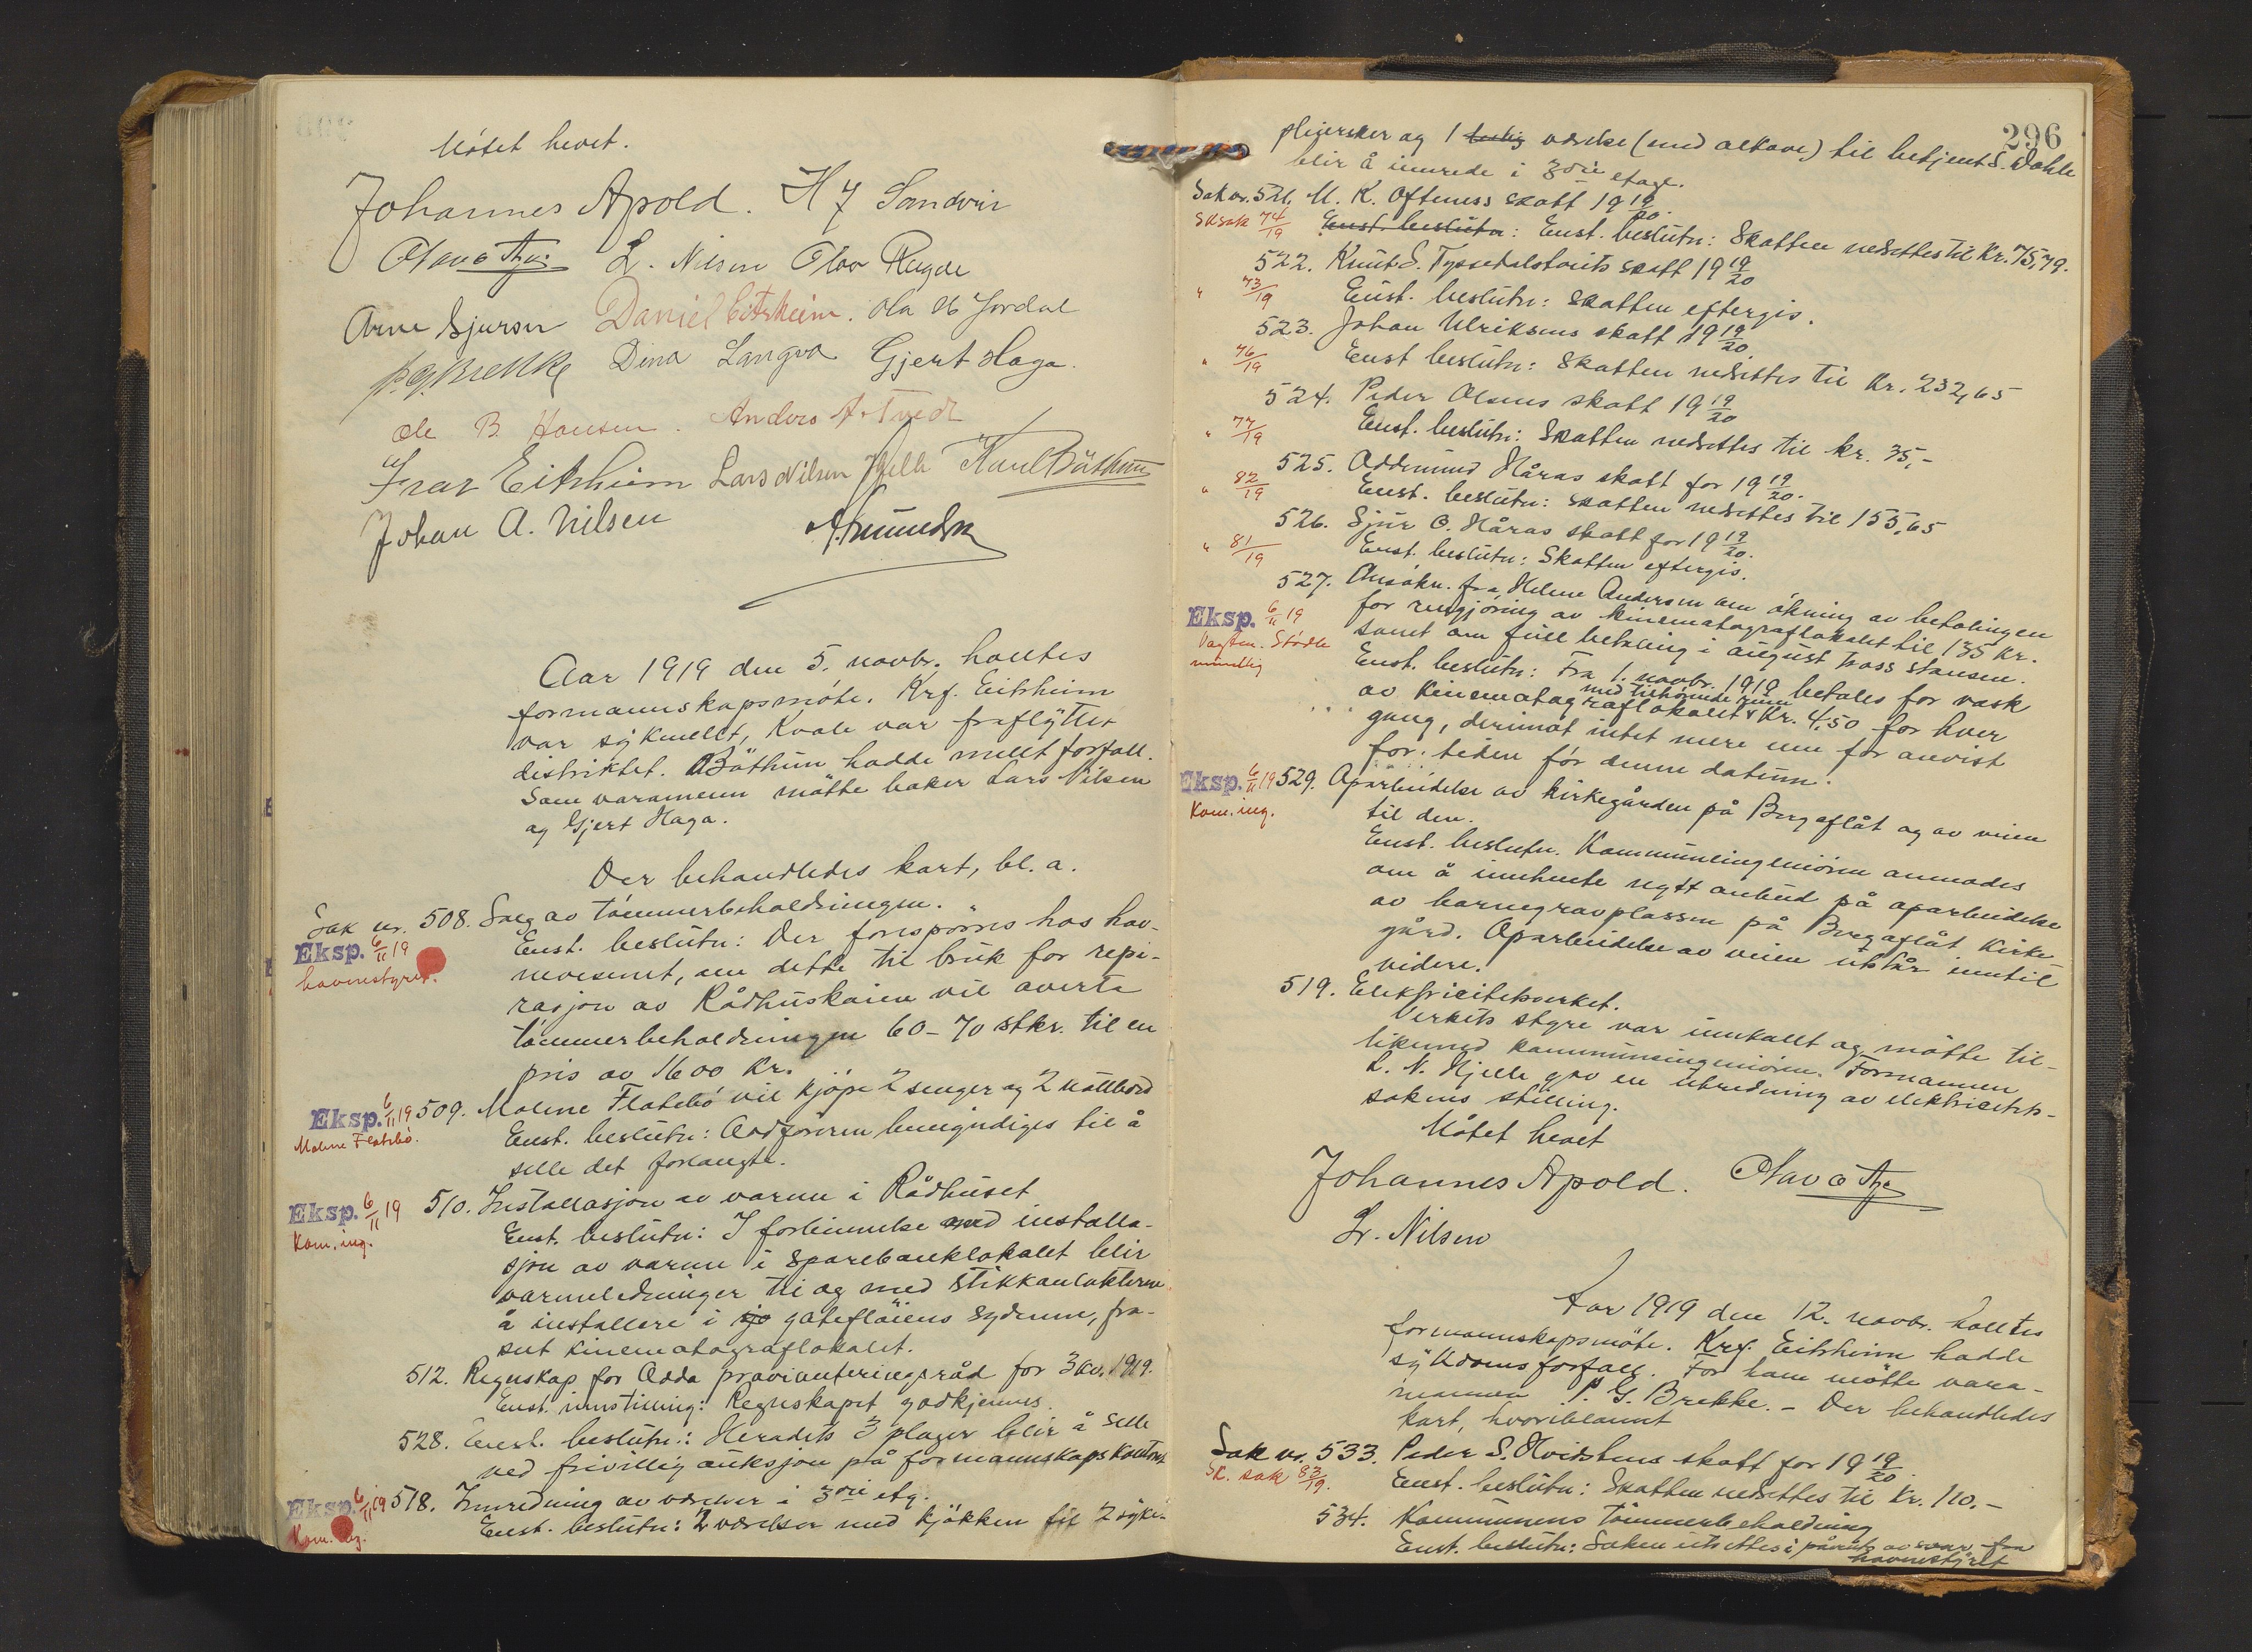 Mötet hevet.
Johannes Apold. H J Sandvin
Olav Aga L. Nilsen Olav Ragde
Arne Sjursen Daniel Eitrheim. Ola Jordal
P. G. Brekke Dina Langva Gjert Haga.
Ole B. Hansen. Anders A. Tvedt
Ivar Eitrheim Lars Nilsen Hjelle Karl Böthun
Johan A. Nilsen Amundsen
Aar 1919 den 5. novbr. holltes
formannskapsmöte. Krf. Eitrheim
var sykmellt, Kvale var fraflyttet
distriktet. Böthun hadde mellt forfall.
Som varamenn mötte baker Lars Nilsen
og Gjert Haga.
Der behandledes kart, bl. a.
Sak nr. 508. Salg av tömmerbeholdningen.
Eksp. 6/11 19
havnestyret.
Enst. beslutn: Der forespörres hos hav-
nevesenet, om dette til bruk for repi-
rasjon av Rådhuskaien vil overta
tömmerbeholdningen 60-70 stkr. til en
pris av 1600 Kr.
Eksp. 6/11 19 509. Malene Flatebö vil kjöpe 2 senger og 2 nattbord
Malene Flatebö.
Enst. beslutn: Ordföreren bemyndiges til å
selle det forlangte.
Eksp. 6/11 19 510. Installasjon av varme i Rådhuset
Kom. ing.
Enst. beslutn: I forbinnelse med installa-
sjon av varme i Sparebanklokalet blir
varmeledninger til og med stikkontakterne
å installere i sjø gatefløiens sydenne, fra-
sett kinematograflokalet.
512. Regnskap for Odda provianteringsråd for 3 kv. 1919.
Enst. innstilling: Regnskapet godkjennes.
528. Enst. beslutn: Heradets 3 plager blir å selle
ved frivillig auksjon på formannskapskontoret
Eksp. 6/11 19 518. Innredning av værelser i 3die etg.
Kom. ing.
Enst. beslutn: 2 værelser med kjökken til 2 syke-
296
pleiersker og 1 ledig værelse (med alkove) til betjent S. Dahle
blir å innrede i 3die etage.
Sak nr. 521. M. K. Ofteness skatt 19 19/20.
Sk sak 74/19 Enst. beslutn: Enst. beslutn: Skatten nedsettes til Kr. 75,79.
522. Knut S. Tyssedalstveits skatt 19 19/20
" 73/19 Enst. beslutn: Skatten eftergis.
523. Johan Ulriksens skatt 19 19/20
" 76/19 Enst beslutn: Skatten nedsettes til Kr. 232,65
524. Peder Olsens skatt 19 19/20
" 77/19 Enst. beslutn: Skatten nedsettes til kr. 35,-
525. Oddmund Håras skatt for 19 19/20.
" 82/19 Enst. beslutn: Skatten nedsettes til 155,65
526. Sjur O. Håras skatt for 19 19/20.
" 81/19 Enst. beslutn: Skatten eftergis.
527. Ansökn. fra Helene Andersen om ökning av betalingen
Eksp. 6/11 19 for rengjöring av kinematograflokalet til 135 Kr.
Vagtm. Stödle
mundtlig
samt om full betaling i august tross stansen.
Enst. beslutn: Fra 1. novbr. 1919 betales for vask
med tilhörende rum
av Kinematograflokalet Kr. 4,50 for hver
gang, derimot intet mere enn för anvist
for tiden för denne datum.
Eksp. 6/11 19 529. Oparbeidelse av kirkegården på Bergaflåt og av veien
Kom. ing. til den.
Enst. beslutn. Kommuneingeniören anmodes
om å innhente nytt anbud på oparbeidelse
av barnegravplassen på Bergaflåt Kirke-
gård. Oparbeidelse av veien utstår inntil
videre.
519. Elektricitetsverket.
Verkets styre var innkallt og mötte til-
likemed kommuneingeniören. Formannen
L. N. Hjelle gav en utredning av elektricitets-
sakens stilling.
Mötet hevet
Johannes Apold. Olav Aga
Lr. Nilsen
Aar 1919 den 12. novbr. holltes
formannskapsmöte. Krf. Eitrheim hadde
sykdomsforfall. For ham mötte vara-
mannen P. G. Brekke. - Der behandledes
kart, hvoriblannt
Sak nr. 533. Peder S. Hvidstens skatt for 19 19/20.
Sk. sak 83/19. Enst. beslutn: Skatten nedsettes til Kr. 110.-
534. Kommunens tömmerbeholdning
Enst. beslutn: Saken utsettes i påvente av svar fra
havnestyret